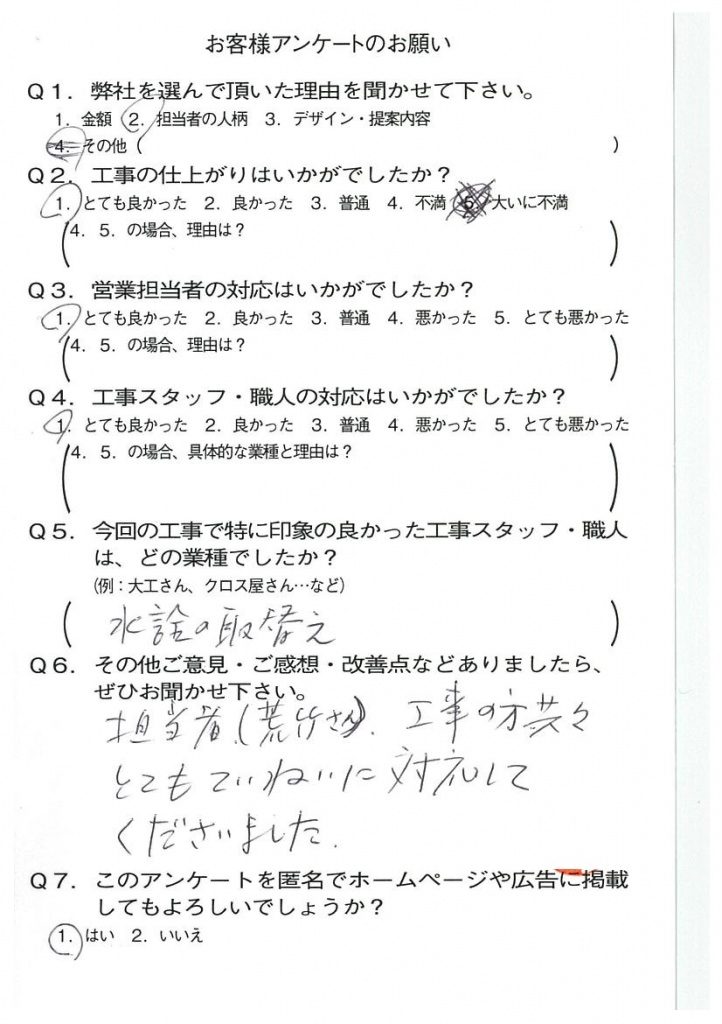 お客様アンケートのお願い
Q1. 弊社を選んで頂いた理由を聞かせて下さい。
1. 金額 2. 担当者の人柄 3. デザイン・提案内容
4. その他 ( )
Q2. 工事の仕上がりはいかがでしたか？
1. とても良かった 2. 良かった 3. 普通 4. 不満 5. 大いに不満
(4. 5. の場合、理由は？ )
Q3. 営業担当者の対応はいかがでしたか？
1. とても良かった 2. 良かった 3. 普通 4. 悪かった 5. とても悪かった
(4. 5. の場合、理由は？ )
Q4. 工事スタッフ・職人の対応はいかがでしたか？
1. とても良かった 2. 良かった 3. 普通 4. 悪かった 5. とても悪かった
(4. 5. の場合、具体的な業種と理由は？ )
Q5. 今回の工事で特に印象の良かった工事スタッフ・職人
は、どの業種でしたか？
(例：大工さん、クロス屋さん…など)
( 水詮の取替え )
Q6. その他ご意見・ご感想・改善点などありましたら、
ぜひお聞かせ下さい。
担当者(荒竹さん)、工事の方共々
とてもていねいに対応して
くださいました.
Q7. このアンケートを匿名でホームページや広告に掲載
してもよろしいでしょうか？
1. はい 2. いいえ